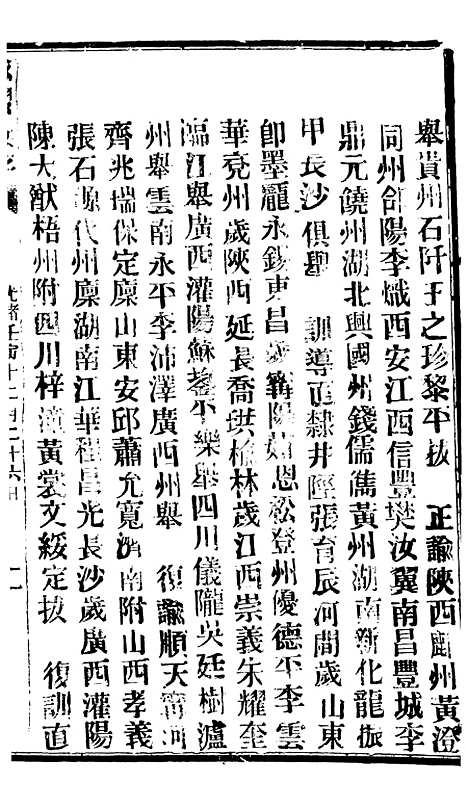 舉貴州石阡王之珍黎平拔　正諭陝西鄜州黃澄
同州郃陽李熾西安江西信豐樊汝翼南昌豐城李
鼎元饒州湖北興國州錢儒儁黃州湖南新化龍振
甲長沙俱舉　訓導直隸井陘張育辰河間歲山東
卽墨龐永錫東昌歲　陽茹恩松登州優德平李雲
華兗州歲陝西延長喬珙榆林歲江西崇義朱耀奎
臨江舉廣西灌陽蘇鋆平樂舉四川儀隴吳廷樹瀘
州舉雲南永平李沛澤廣西州舉　復諭順天甯河
齊兆瑞保定廩山東安邱蕭允寬濟南附山西孝義
張石麟代州廩湖南江華程昌光長沙歲廣西灌陽
陳大猷梧州附四川梓潼黃裳文綏定拔　復訓直
光緒壬寅十二月二十六日　二